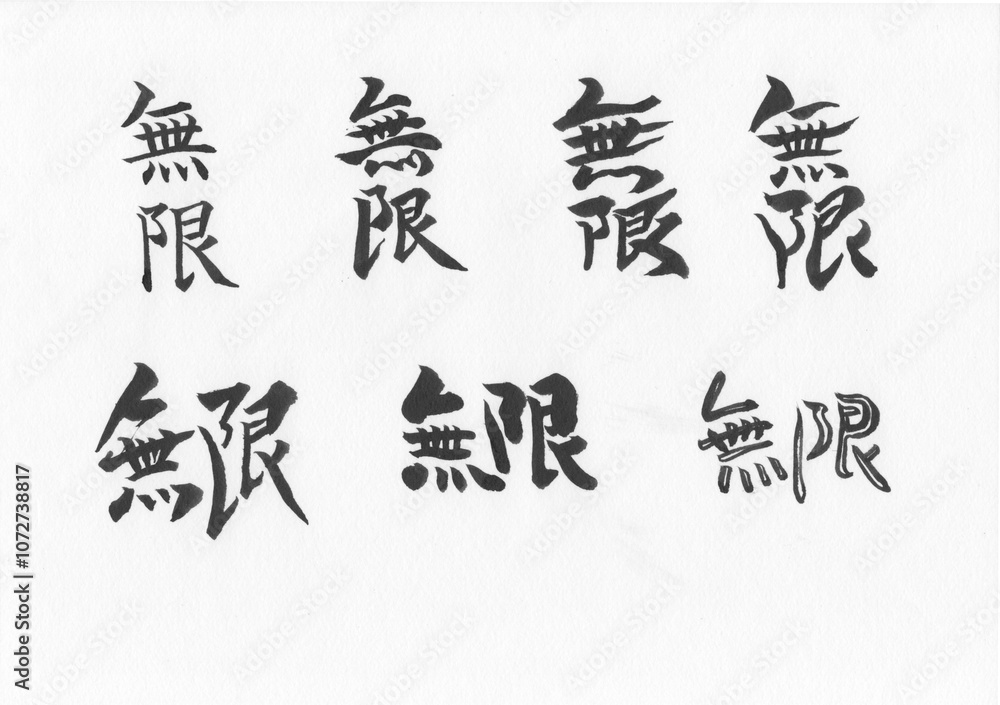 無限 無限 無限 無限
無限 無限 無限
Adobe Stock | #1072738817